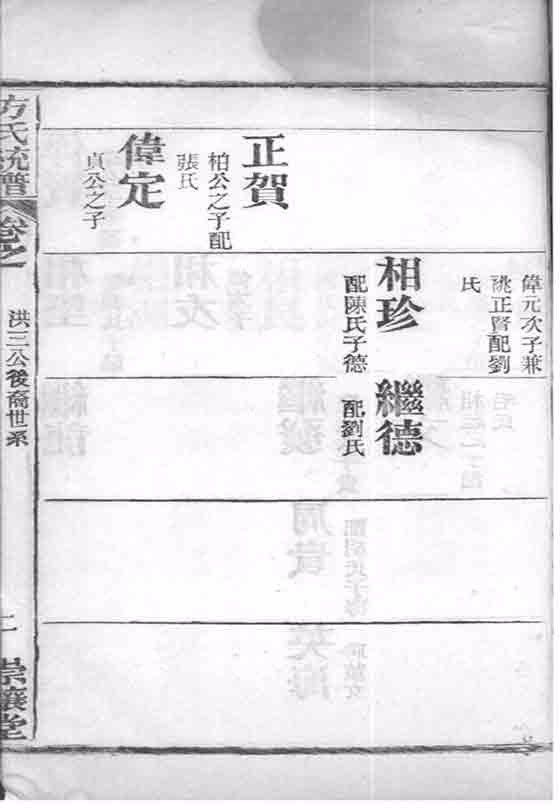 正賀
柏公之子配
張氏
偉定
貞公之子
偉元次子兼
祧正賢配劉
氏
相珍
配陳氏子德
繼德
配劉氏
方氏統譜
卷之
洪三公後裔世系
崇讓堂